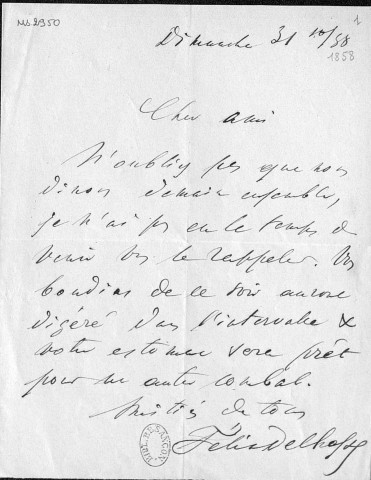 Ms 2950
1
Dimanche 31 8bre/58
1858
Cher ami
N'oubliez pas que nous
dinons demain ensemble,
je n'ai pas eu le temps de
venir vs le rappeler. Vos
boudins de ce soir auront
digéré dans l'intervalle &
votre estomac sera prêt
pour un autre combat.
Amitiés de tous
Félix Delhasse